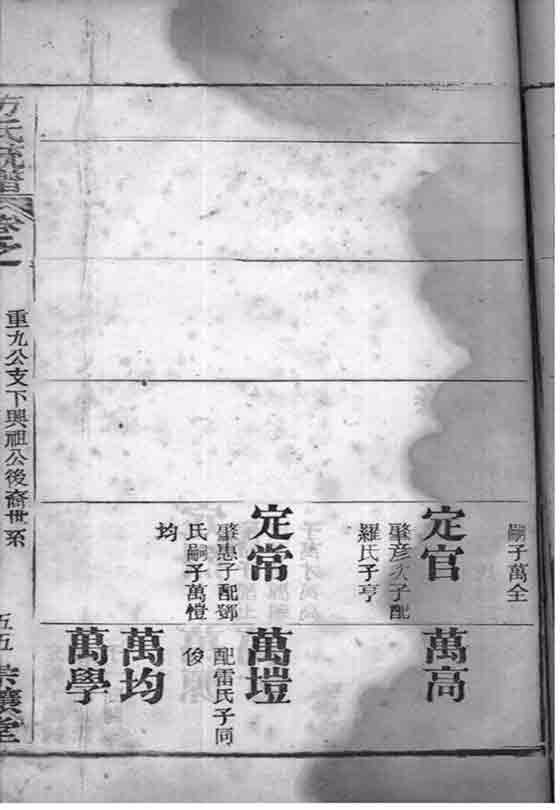 嗣子萬全
定官
肇彥次子配
羅氏子亨
定常
肇惠子配鄧
氏嗣子萬愷
均
萬高
萬塏
配雷氏子同
俊
萬均
萬學
方氏統譜
卷之
重九公支下興祖公後裔世系
五五
崇讓堂